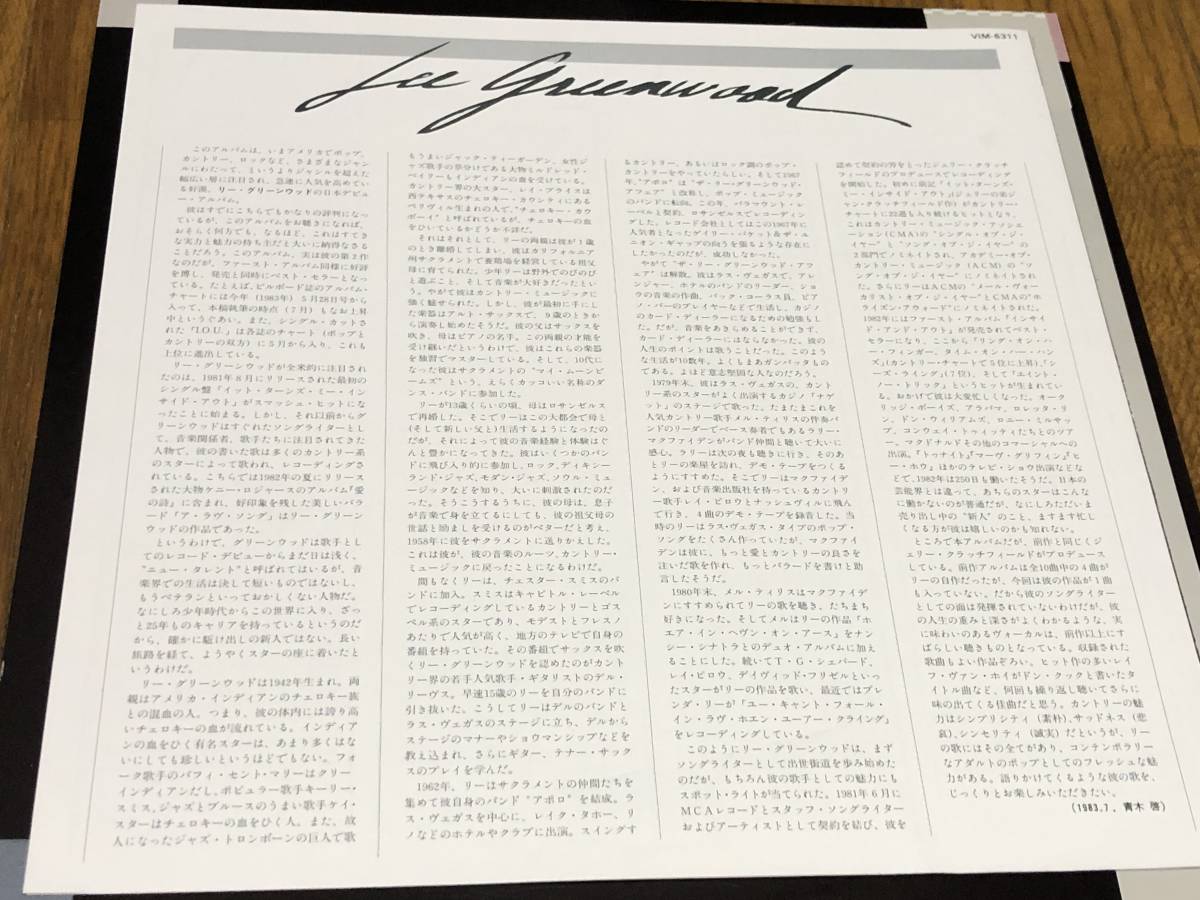 VIM-6311
Lee Greenwood
このアルバムは、いまアメリカでポップ、
カントリー、ロックなど、さまざまなジャン
ルにわたって、というよりジャンルを超えた
幅広い層に注目され、急速に人気を高めてい
る好漢、リー・グリーンウッドの日本デビュ
ー・アルバム。
彼はすでにこちらでもかなりの評判になっ
ているが、このアルバムをお聴きになれば、
おそらく何方でも、なるほど、これはすてき
な実力と魅力の持ち主だと大いに納得なさる
ことだろう。このアルバム、実は彼の第2作
なのだが、ファースト・アルバム同様に好評
を博し、発売と同時にベスト・セラーとなっ
ている。たとえば、ビルボード誌のアルバム・
チャートには今年(1983年)5月28日号から
入って、本稿執筆の時点(7月)もなお上昇
中というぐあい。また、シングル・カットさ
れた「I.O.U.」は各誌のチャート(ポップと
カントリーの双方)に5月から入り、これも
上位に進出している。
リー・グリーンウッドが全米的に注目され
たのは、1981年8月にリリースされた最初の
シングル盤『イット・ターンズ・ミー・イン
サイド・アウト』がスマッシュ・ヒットにな
ったことに始まる。しかし、それ以前からグ
リーンウッドはすぐれたソングライターとし
て、音楽関係者、歌手たちに注目されてきた
人物で、彼の書いた歌は多くのカントリー系
のスターによって歌われ、レコーディングさ
れている。こちらでは1982年の夏にリリース
された大物ケニー・ロジャースのアルバム『愛
の詩』に含まれ、好印象を残した美しいバラ
ード「ア・ラヴ・ソング」はリー・グリーン
ウッドの作品であった。
というわけで、グリーンウッドは歌手とし
てのレコード・デビューからまだ日は浅く、
“ニュー・タレント”と呼ばれてはいるが、音
楽界での生活は決して短いものではないし、
もうベテランといっておかしくない人物だ。
なにしろ少年時代からこの世界に入り、ざっ
と25年ものキャリアを持っているというのだ
から、確かに駆け出しの新人ではない。長い
旅路を経て、ようやくスターの座に着いたと
いうわけだ。
リー・グリーンウッドは1942年生まれ。両
親はアメリカ・インディアンのチェロキー族
との混血の人。つまり、彼の体内には誇り高
いチェロキーの血が流れている。インディア
ンの血をひく有名スターは、あまり多くはな
いにしても珍しいというほどでもない。フォ
ーク歌手のバフィ・セント・マリーはクリー・
インディアンだし、ポピュラー歌手キーリー・
スミス、ジャズとブルースのうまい歌手ケイ・
スターはチェロキーの血をひく人。また、故
人になったジャズ・トロンボーンの巨人で歌
もうまいジャック・ティーガーデン、女性ジ
ャズ歌手の草分けである大物ミルドレッド・
ベイリーもインディアンの血を受けている。
カントリー界の大スター、レイ・プライスは
西テキサスのチェロキー・カウンティにある
ペリヴィル生まれの人で、“チェロキー・カウ
ボーイ”と呼ばれているが、チェロキーの血
をひいているかどうか不詳だ。
それはそれとして、リーの両親は彼が1歳
のとき離婚してしまい、彼はカリフォルニア
州サクラメントで養鶏場を経営している祖父
母に育てられた。少年リーは野外でのびのび
と遊ぶこと、そして音楽が大好きだったとい
う。やがて彼はカントリー・ミュージックに
強く魅せられた。しかし、彼が最初に手にし
た楽器はアルト・サックスで、9歳のときか
ら演奏し始めたそうだ。彼の父はサックスを
吹き、母はピアノの名手。この両親の才能を
受け継いだというわけで、彼はこれらの楽器
を独習でマスターしている。そして、10代に
なった彼はサクラメントの“マイ・ムーンビ
ームズ”という、えらくカッコいい名称のダン
ス・バンドに参加した。
リーが13歳くらいの頃、母はロサンゼルス
で再婚した。そこでリーはこの大都会で母と
(そして新しい父と)生活するようになったの
だが、それによって彼の音楽経験と体験はぐ
んと豊かになってきた。彼はいくつかのバン
ドに飛び入り的に参加し、ロック、ディキシー
ランド・ジャズ、モダン・ジャズ、ソウル・ミュ
ージックなどを知り、大いに刺激されたのだ
った。そうこうするうちに、彼の母は、息子
が音楽で身を立てるにしても、彼の祖父母の
世話と励ましを受けるのがベターだと考え、
1958年に彼をサクラメントに送りかえした。
これは彼が、彼の音楽のルーツ、カントリー・
ミュージックに戻ったことになるわけだ。
間もなくリーは、チェスター・スミスのバ
ンドに加入。スミスはキャピトル・レーベル
でレコーディングしているカントリーとゴス
ペル系のスターであり、モデストとフレスノ
あたりで人気が高く、地方のテレビで自身の
番組を持っていた。その番組でサックスを吹
くリー・グリーンウッドを認めたのがカント
リー界の若手人気歌手・ギタリストのデル・
リーヴス。早速15歳のリーを自分のバンドに
引き抜いた。こうしてリーはデルのバンドと
ラス・ヴェガスのステージに立ち、デルから
ステージのマナーやショウマンシップなどを
教え込まれ、さらにギター、テナー・サック
スのプレイを学んだ。
1962年、リーはサクラメントの仲間たちを
集めて彼自身のバンド“アポロ”を結成。ラ
ス・ヴェガスを中心に、レイク・タホー、リ
ノなどのホテルやクラブに出演。スイングす
るカントリー、あるいはロック調のポップ・
カントリーをやっていたらしい。そして1967
年、“アポロ”は“ザ・リー・グリーンウッド・
アフェア”と改称し、ポップ・ミュージック
のバンドに転向。この年、パラマウント・レ
ーベルと契約、ロサンゼルスでレコーディン
グした。レコード会社としてはこの1967年に
人気者となったゲイリー・パケット&ザ・ユ
ニオン・ギャップの向うを張るような存在に
したかったのだが、成功しなかった。
やがて“ザ・リー・グリーンウッド・アフ
ェア”は解散。彼はラス・ヴェガスで、アレ
ンジャー、ホテルのバンドのリーダー、ショ
ウの音楽の作曲、バック・コーラス員、ピア
ノ・バーのプレイヤーなどで生活し、カジノ
のカード・ディーラーになるための勉強もし
た。だが、音楽をあきらめることができず、
カード・ディーラーにはならなかった。彼の
人生のポイントは歌うことだった。このよう
な生活が10数年。よくもまあガンバッタもの
である。よほど意志堅固な人なのだろう。
1979年末、彼はラス・ヴェガスの、カント
リー系のスターがよく出演するカジノ“ナゲ
ット”のステージで歌った。たまたまこれを
人気カントリー歌手メル・ティリスの伴奏バ
ンドのリーダーでベース奏者でもあるラリー・
マクファイデンがバンド仲間と聴いて大いに
感心。ラリーは次の夜も聴きに行き、そのあ
とリーの楽屋を訪れ、デモ・テープをつくる
ようにすすめた。そこでリーはマクファイデ
ン、および音楽出版社を持っているカントリ
ー歌手レイ・ピロウとナッシュヴィルに飛ん
で行き、4曲のデモ・テープを録音した。当
時のリーはラス・ヴェガス・タイプのポップ・
ソングをたくさん作っていたが、マクファイ
デンは彼に、もっと愛とカントリーの良さを
注いだ歌を作れ、もっとバラードを書けと助
言したそうだ。
1980年末、メル・ティリスはマクファイデ
ンにすすめられてリーの歌を聴き、たちまち
好きになった。そしてメルはリーの作品「ホ
エア・イン・ヘヴン・オン・アース」をナン
シー・シナトラとのデュオ・アルバムに加え
ることにした。続いてT・G・シェパード、
レイ・ピロウ、デイヴィッド・フリゼルといっ
たスターがリーの作品を歌い、最近ではブレ
ンダ・リーが「ユー・キャント・フォール・
イン・ラヴ・ホエン・ユーアー・クライング」
をレコーディングしている。
このようにリー・グリーンウッドは、まず
ソングライターとして出世街道を歩み始めた
のだが、もちろん彼の歌手としての魅力にも
スポット・ライトが当てられた。1981年6月に
MCAレコードとスタッフ・ソングライター
およびアーティストとして契約を結び、彼を
認めて契約の労をとったジェリー・クラッチ
フィールドのプロデュースでレコーディング
を開始した。初めに前記「イット・ターンズ・
ミー・インサイド・アウト」(ジェリーの弟ジ
ャン・クラッチフィールド作)がカントリー・
チャートに22週も入り続けるヒットとなり、
これはカントリー・ミュージック・アソシエ
ーション(CMA)の“シングル・オブ・ジ・イ
ヤー”と“ソング・オブ・ジ・イヤー”の
2部門でノミネイトされ、アカデミー・オブ・
カントリー・ミュージック(ACM)の“ソ
ング・オブ・ジ・イヤー”にノミネイトされ
た。さらにリーはACMの“メール・ヴォー
カリスト・オブ・ジ・イヤー”とCMAの“ホ
ライズン・アウォード”にノミネイトされた。
1982年にはファースト・アルバム「インサイ
ド・アンド・アウト」が発売されてベスト・
セラーになり、ここから「リング・オン・ハ
ー・フィンガー、タイム・オン・ハー・ハン
ズ」(カントリー・チャートで5位に上昇)、「シ
ーズ・ライング」(7位)、そして「エイント・
ノー・トリック」というヒットが生まれてい
る。おかげで彼は大変忙しくなった。オーク
リッジ・ボーイズ、アラバマ、ロレッタ・リ
ン、ドン・ウィリアムズ、ロニー・ミルサッ
プ、コンウェイ・トゥイッティたちとのツア
ー。マクドナルドその他のコマーシャルへの
出演。『トゥナイト』『マーヴ・グリフィン』『ヒ
ー・ホウ』ほかのテレビ・ショウ出演などな
どで、1982年は250日も働いたそうだ。日本の
芸能界とは違って、あちらのスターはこんな
に働かないのが普通だが、なにしろただいま
売り出し中の“新人”のこと、ますます忙し
くなる方が彼は嬉しいのかも知れない。
ところで本アルバムだが、前作と同じくジ
ェリー・クラッチフィールドがプロデュース
している。前作アルバムは全10曲中の4曲が
リーの自作だったが、今回は彼の作品が1曲
も入っていない。だから彼のソングライター
としての面は発揮されていないわけだが、彼
の人生の重みと深さがよくわかるような、実
に味わいのあるヴォーカルは、前作以上にす
ばらしい聴きものとなっている。収録された
歌曲もよい作品ぞろい。ヒット作の多いレイ
フ・ヴァン・ホイがドン・クックと書いたタ
イトル曲など、何回も繰り返し聴いてさらに
味の出てくる佳曲だと思う。カントリーの魅
力はシンプリシティ(素朴)、サッドネス(悲
哀)、シンセリティ(誠実)だというが、リー
の歌にはその全てがあり、コンテンポラリー
なアダルトのポップとしてのフレッシュな魅
力がある。語りかけてくるような彼の歌を、
じっくりとお楽しみいただきたい。
(1983.7. 青木 啓)